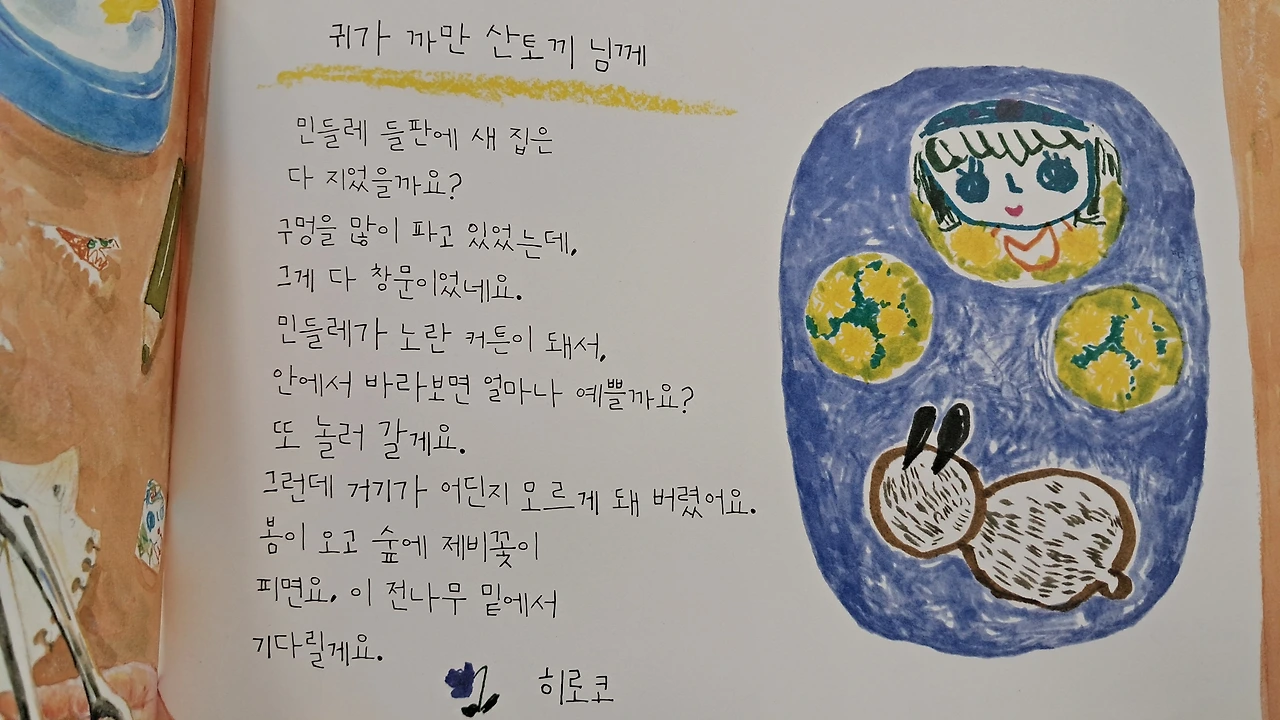 귀가 까만 산토끼 님께
민들레 들판에 새 집은
다 지었을까요?
구멍을 많이 파고 있었는데,
그게 다 창문이었네요.
민들레가 노란 커튼이 돼서,
안에서 바라보면 얼마나 예쁠까요?
또 놀러 갈게요.
그런데 거기가 어딘지 모르게 돼 버렸어요.
봄이 오고 숲에 제비꽃이
피면요, 이 전나무 밑에서
기다릴게요.
히로코